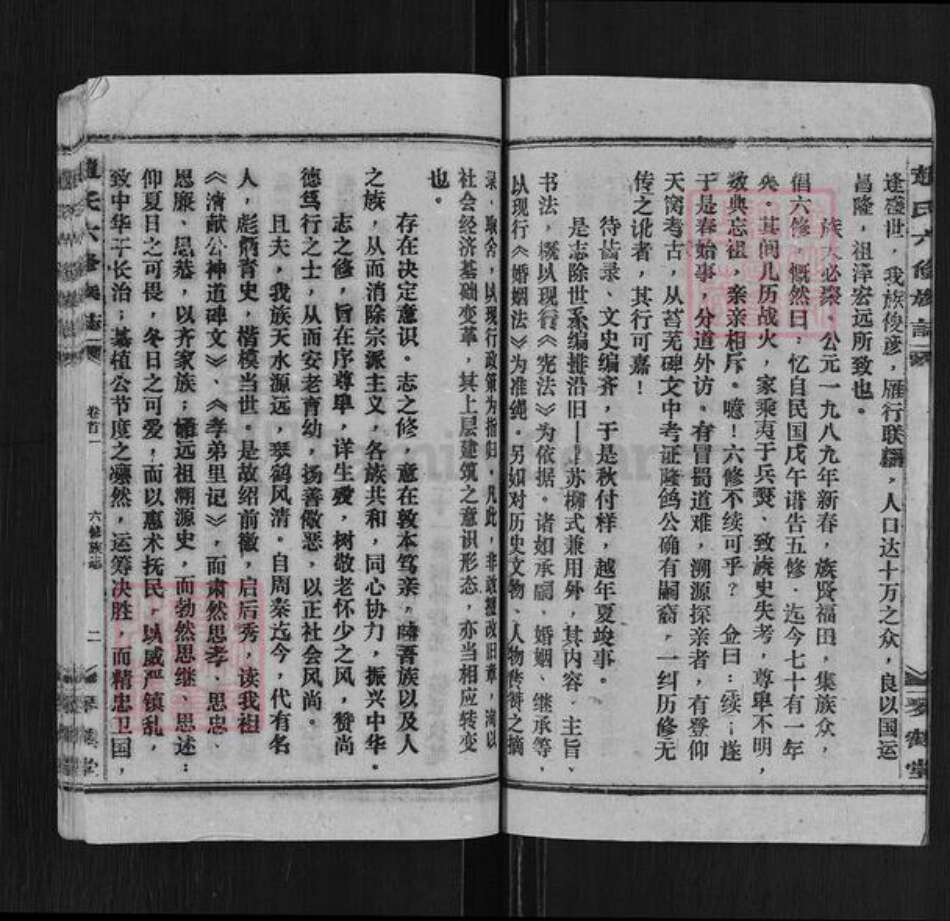 趙氏六修族誌
琴鹤堂
逢盛世，我族俊彦，雁行联翩，人口达十万之众，良以国运
昌隆，祖泽宏远所致也。
族大必聚、公元一九八九年新春，族贤福田，集族众，
倡六修，慨然曰，忆自民国戊午谱告五修．迄今七十有一年
矣。其间几历战火，家乘夷于兵燹、致族史失考，尊卑不明，
数典忘祖，亲亲相斥。噫！六修不续可乎？佥曰：续；遂
于是春始事，分道外访。有冒蜀道难，溯源探亲者，有登仰
天窝考古，从苔芜碑文中考证隆鸽公确有嗣裔，一纠历修无
传之讹者，其行可嘉！
待齿录、文史编齐，于是秋付梓，越年夏竣事。
是志除世系编排沿旧——苏柳式兼用外，其内容、主旨、
书法，概以现行《宪法》为依据。诸如承嗣、婚姻、继承等，
以现行《婚姻法》为准绳。另如对历史文物、人物传赞之摘
录、取舍，以现行政策为指归，凡此，非敢擅改旧章，海以
社会经济基础变革，其上层建筑之意识形态，亦当相应转变
也。
存在决定意识。志之修，意在敦本笃亲，畴吾族以及人
之族，从而消除宗派主义，各族共和，同心协力，振兴中华。
志之修，旨在序尊卑，详生殁，树敬老怀少之风，赞尚
德笃行之士，从而安老育幼，扬善儆恶，以正社会风尚。
且夫，我族天水源远，琴鹤风清。自周秦迄今，代有名
人，彪炳青史，楷模当世。是故绍前徽，启后秀，读我祖
《清献公神道碑文》、《孝弟里记》，而肃然思孝、思忠、
思廉、思恭，以齐家族；诵远祖溯源史，而勃然思继、思述：
仰夏日之可畏，冬日之可爱，而以惠术抚民，以威严镇乱，
致中华于长治；慕植公节度之凛然，运筹决胜，而精忠卫国，
趙氏六修族誌
卷首一
六修族志
二
琴鹤堂